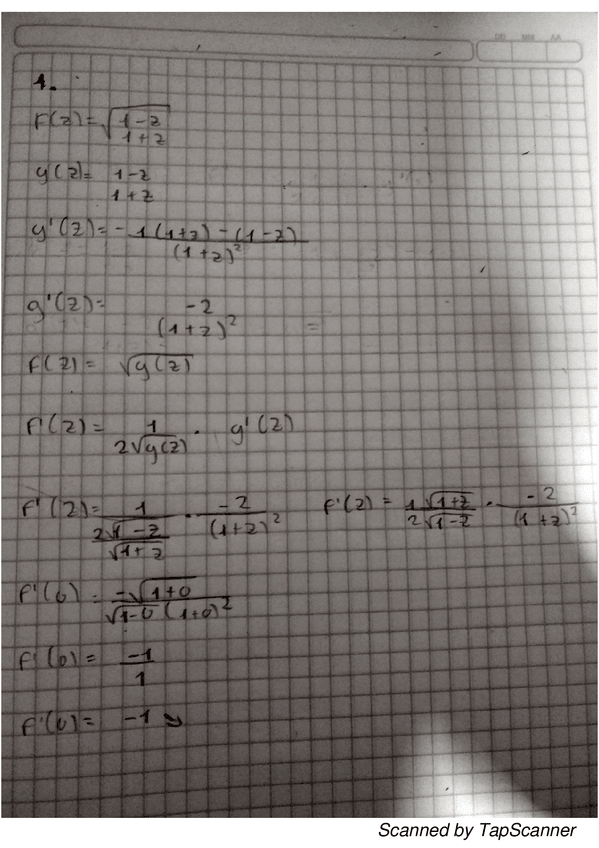 DD MM AA
1.
F(z)=√(1-z / 1+z)
g(z)= 1-z / 1+z
g'(z)= -1(1+z) - (1-z) / (1+z)²
g'(z)= -2 / (1+z)² =
F(z)= √g(z)
F'(z)= 1 / 2√g(z) · g'(z)
F'(z)= 1 / (2√1-z / √1+z) · -2 / (1+z)² F'(z) = 1√1+z / 2√1-z · -2 / (1+z)²
F'(0) = -√1+0 / √1-0 (1+0)²
F'(0)= -1 / 1
F'(0)= -1
Scanned by TapScanner